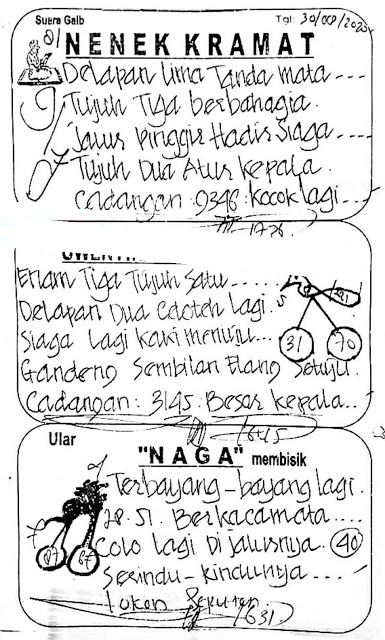 Suara Gaib
Tgl: 30/OCP/2025
NENEK KRAMAT
Delapan lima Tanda mata ....
Tujuh Tiga berbahagia.
Jalur pinggir Hadir Siaga ....
Tujuh Dua Atur Kepala.
Cadangan: 9346: Kocok lagi ...
Enam Tiga Tujuh Satu .....
Delapan Dua Celoteh Lagi.
Siaga Lagi kaki menuju...
31
70
Gandeng Sembilan Elang Setuju.
Cadangan: 3145: Besar kepala...
Ular
"NAGA" membisik
Terbayang-bayang lagi.
28.51. Berkacamata.....
Colo lagi Di jalurnya.
40
87
67
Serindu-rindunya ....